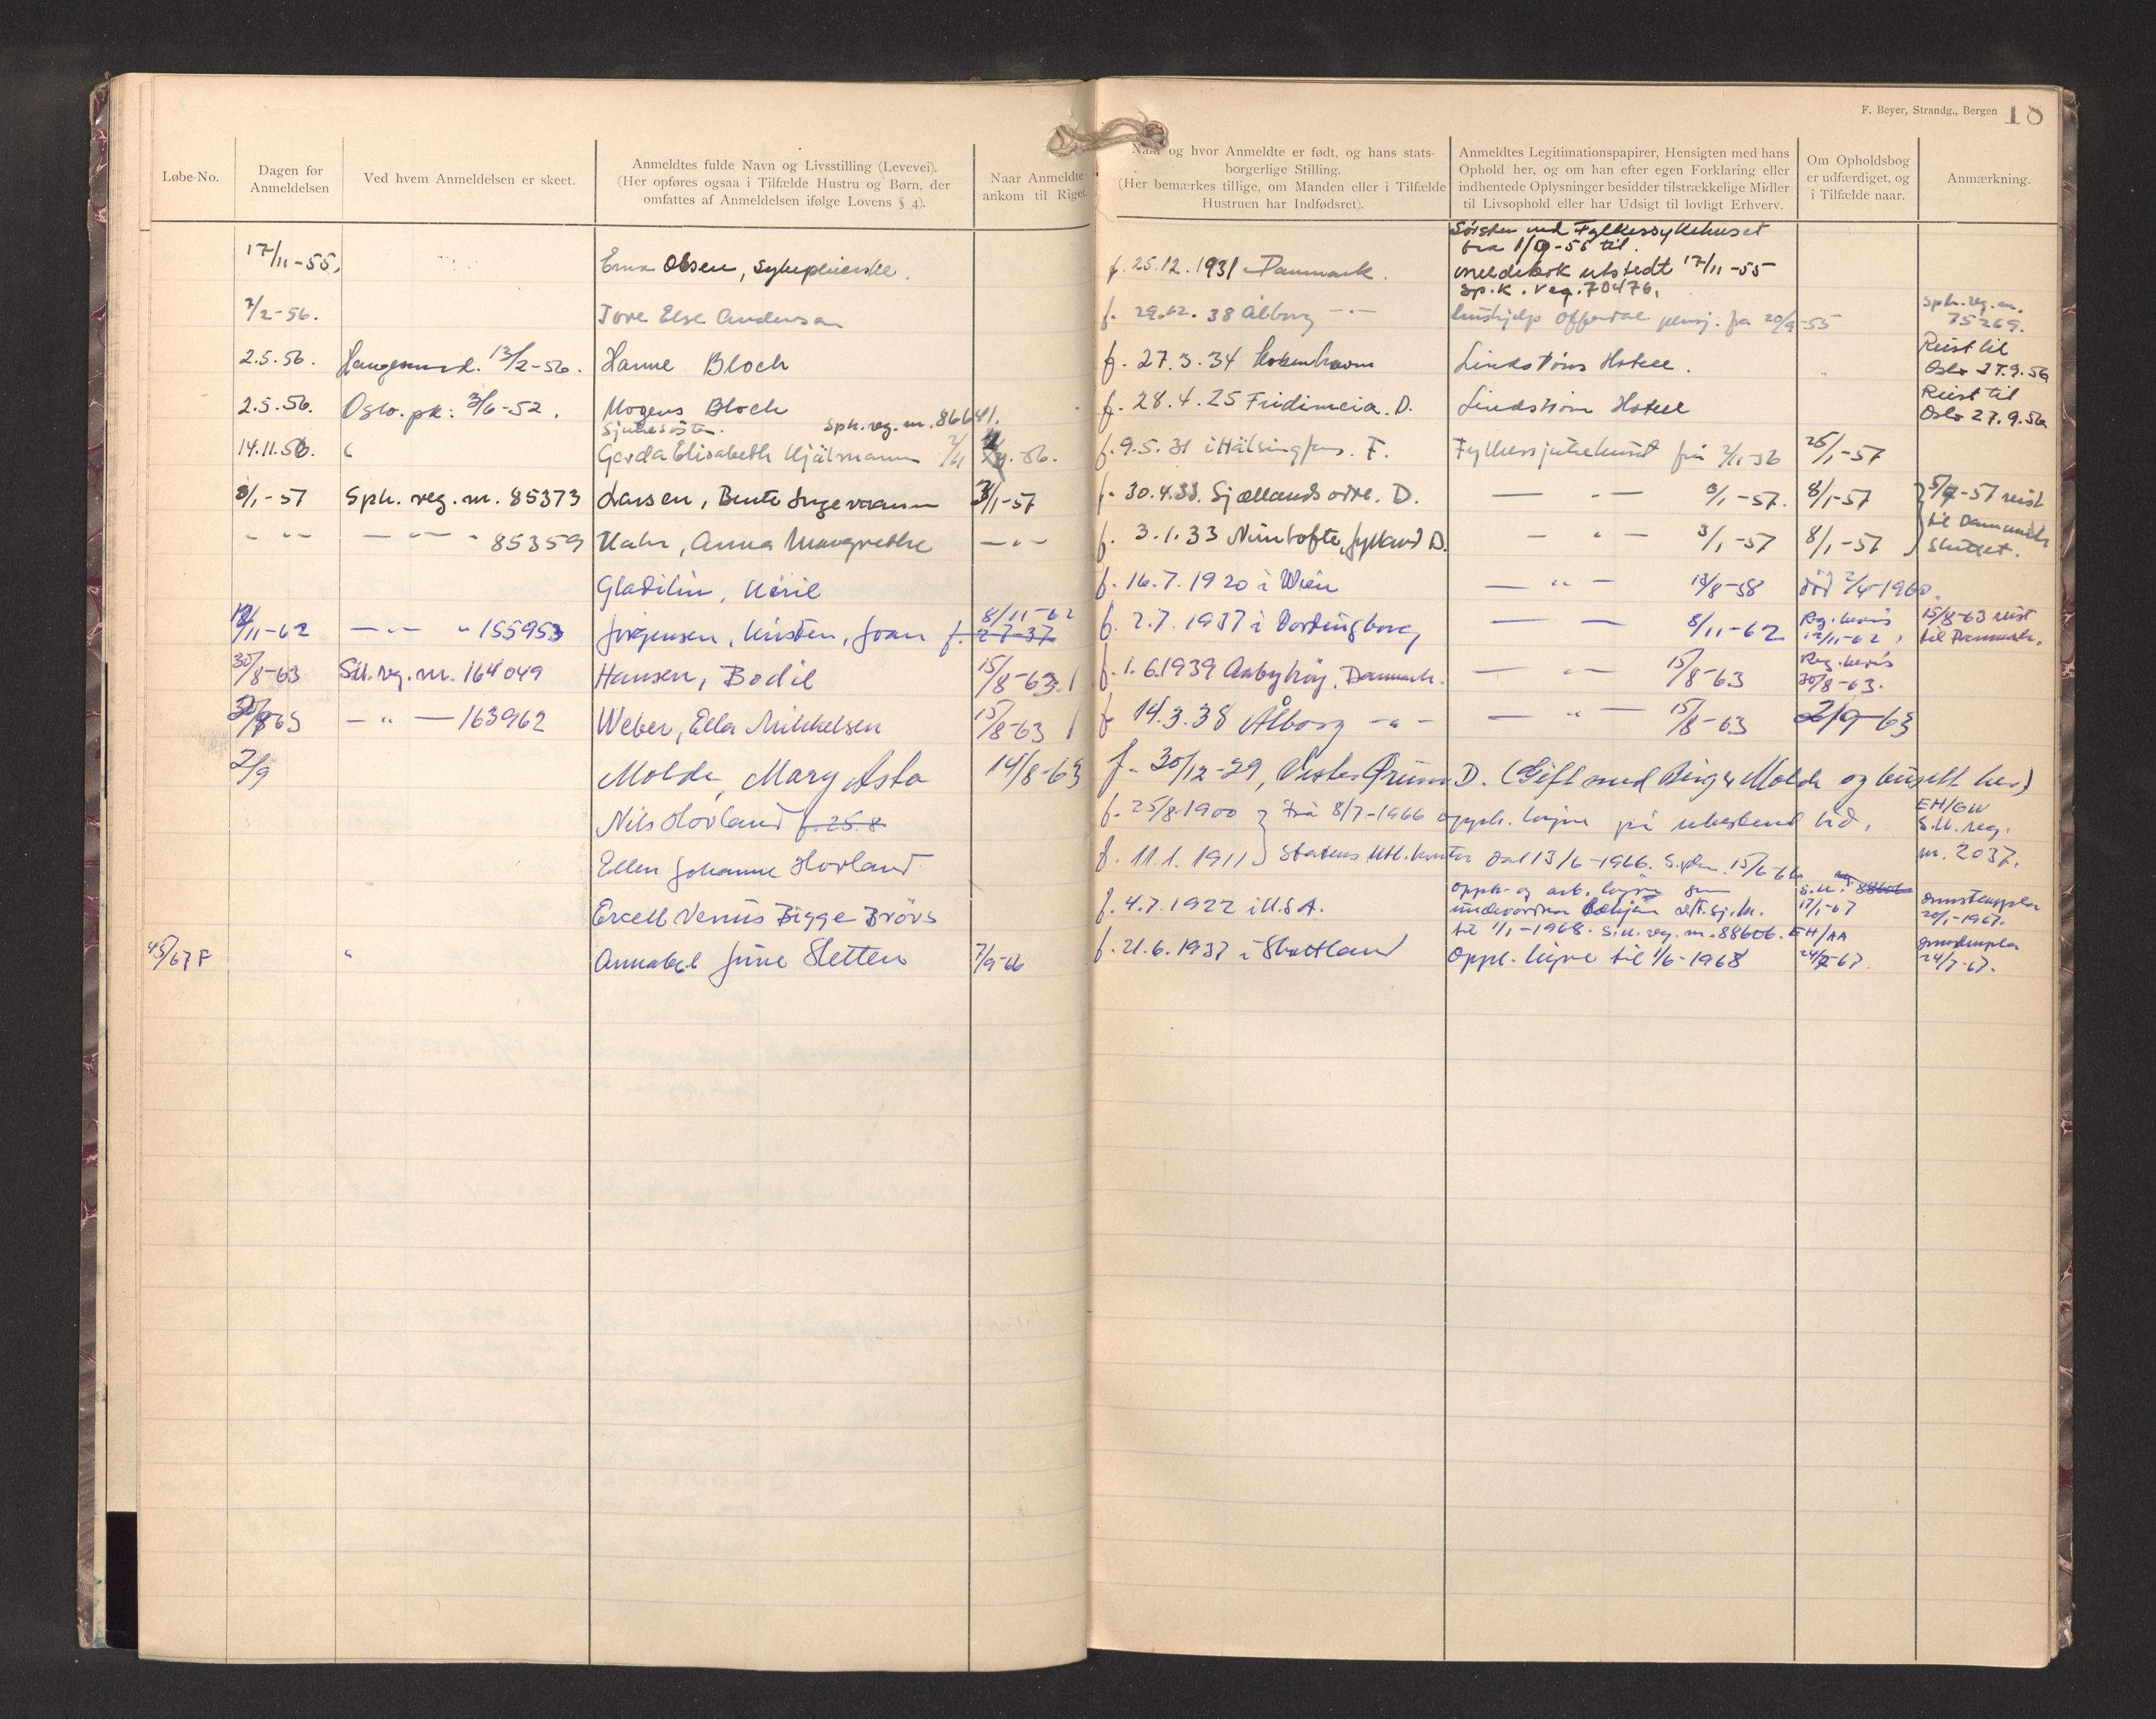 F. Beyer, Strandg., Bergen 18
Løbe-No.
Dagen for
Anmeldelsen
Ved hvem Anmeldelsen er skeet.
Anmeldtes fulde Navn og Livsstilling (Levevei).
(Her opføres ogsaa i Tilfælde Hustru og Børn, der
omfattes af Anmeldelsen ifølge Lovens § 4).
Naar Anmeldte
ankom til Riget
Naar og hvor Anmeldte er født, og hans stats-
borgerlige Stilling.
(Her bemærkes tillige, om Manden eller i Tilfælde
Hustruen har Indfødsret).
Anmeldtes Legitimationspapirer, Hensigten med hans
Ophold her, og om han efter egen Forklaring eller
indhentede Oplysninger besidder tilstrækkelige Midler
til Livsophold eller har Udsigt til lovligt Erhverv.
Om Opholdsbog
er udfærdiget, og
i Tilfælde naar.
Anmærkning.
17/11-55. Erna Olsen, sykepleierske. f. 25.12.1931 Danmark.
Søster ved Fylkessykehuset
fra 1/9-55 til.
meldebok utstedt 17/11-55
Sp.k. reg. 70476.
7/2-56. Tove Else Andersen f. 29.12.38 Ålborg -"- hushjelp Offerdal pensj. fra 20/9-55
Spk. reg. nr.
75269.
2.5.56. Haugesund. 13/2-56. Hanne Bloch f. 27.3.34 København Lindstrøms Hotell.
Reist til
Oslo 27.9.56
2.5.56. Oslo. pk: 3/6-52. Mogens Bloch f. 28.4.25 Fridericia. D. Lindstrøm Hotell
Reist til
Oslo 27.9.56
Sjukesøster. Spk. reg. nr. 86641.
14.11.56. Gerda Elisabeth Hjälmann -56. f. 9.5.31 i Hälsingfors. F. Fylkessjukehuset frå 2/11-56 25/1-57
8/1-57 Spk. reg. nr. 85373 Larsen, Bente Ingermann 3/1-57 f. 30.4.33. Sjællands odde. D. — " — 3/1-57. 8/1-57
5/7-57 reist
til Danmark
sluttet.
- " - — " — " 85359 Hahr, Anna Margrethe — " — f. 3.1.33 Nimtofte, Jylland D. — " — 3/1-57 8/1-57
Gladilin, Kiril f. 16.7.1920 i Wien — " — 18/8-58 død 2/4-1960.
12/11-62 — " — " 155953 Jørgensen, Kirsten, Joan f. 2-7-37 8/11-62 f. 2.7.1937 i Vordingborg — — 8/11-62
Reg. bevis
12/11-62.
15/8-63 reist
til Danmark.
30/8-63 S.U. reg. nr. 164049 Hansen, Bodil 15/8-63. f. 1.6.1939 Aabyhøj, Danmark. — " — 15/8-63
Reg. bevis
30/8-63.
30/8-63 — " — 163962 Weber, Ella Mikkelsen 15/8-63 f. 14.3.38 Ålborg - " - — " — 15/8-63 2/9-63
2/9 Molde, Mary Asta 14/8-63 f. 30/12-29, Vester D. (Gift med Birger Molde og busett her)
Nils Hovland f. 25.8 f. 25/8-1900 Frå 8/7-1966 opph. løyve på ubestemt tid.
EH/GW
S.U. reg.
nr. 2037.
Ellen Johanne Hovland f. 11.1.1911 Statens Utl. kontor dat 13/6-1966. S.
Excell Venus Bigge Brövs f. 4.7.1922 i U.S.A.
opph. og arb. løyve som
til 1/1-1968. S.U. reg. nr. 88606. EH/AA
S.U. 88606
17/1-67
20/1-1967.
45/67 F " Annabel June Sletten 7/9-66 f. 21.6.1937 i Skottland Opph. løyve til 1/6-1968 24/7-67.
24/7-67.